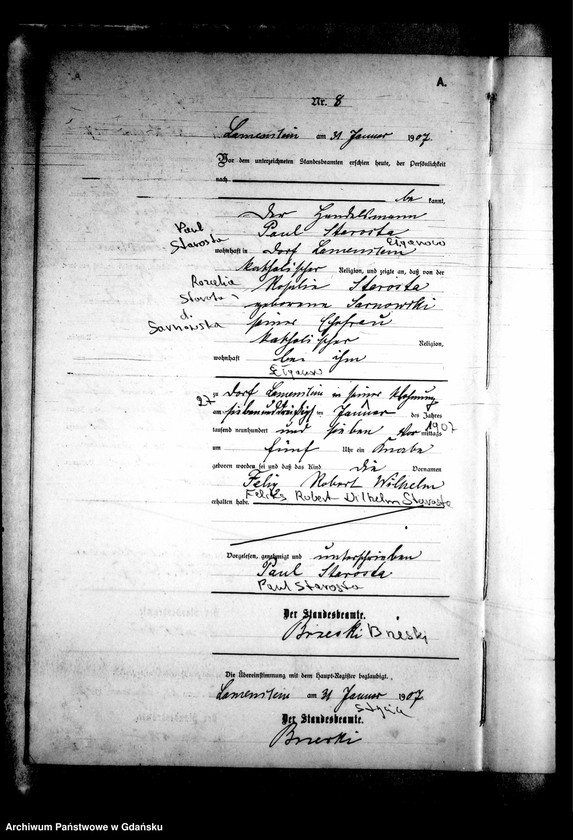 A.
Nr. 8
Lamenstein am 31 Januar 1907.
Vor dem unterzeichneten Standesbeamten erschien heute, der Persönlichkeit
nach
be kannt,
der Handelsmann
Paul
Starosta
Paul Starosta
Ełganowo
wohnhaft in Dorf Lamenstein
katholischer Religion, und zeigte an, daß von der
Rozalia
Starosta
d.
Sarnowska
Rosalie Starosta
geborene Sarnowski
seiner Ehefrau
katholischer Religion,
wohnhaft bei ihm
zu Dorf Lamenstein in seiner Wohnung
27
am siebenundzwanzigsten Januar des Jahres
1907
tausend neunhundert und sieben Vor mittags
um fünf Uhr ein Knabe
geboren worden sei und daß das Kind die Vornamen
Felix Robert Wilhelm
Feliks Robert Wilhelm Starosta
erhalten habe.
Vorgelesen, genehmigt und unterschrieben
Paul Starosta
Paul Starosta
Der Standesbeamte.
Brzeski
Die Übereinstimmung mit dem Haupt-Register beglaubigt.
Lamenstein am 31 Januar 1907.
Der Standesbeamte.
Brzeski
Archiwum Państwowe w Gdańsku